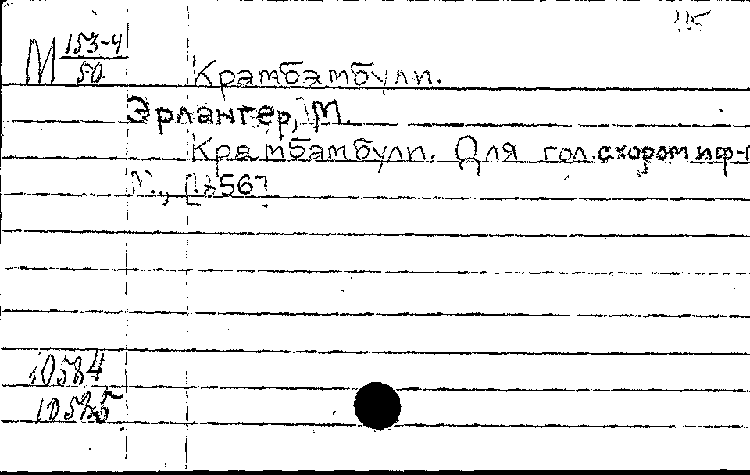 115
М 153-4
50
Крамбамбули.
Эрлангер, М.
Крамбамбули. Для гол. с хором и ф-п
М., [1856]
10584
10585